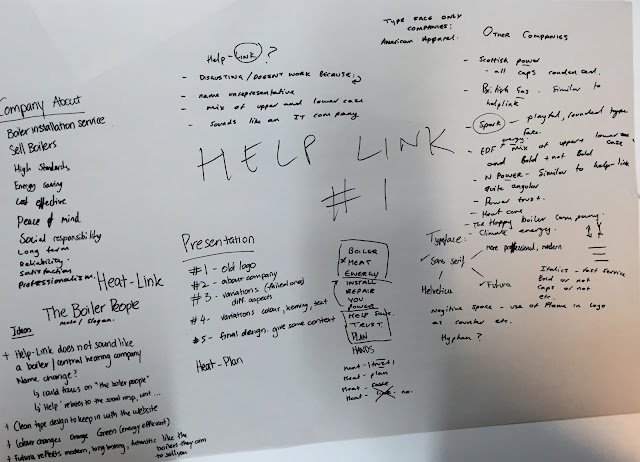 TYPE FACE ONLY
COMPANIES:
American Apparel.
Help-Link?
- DISGUSTING / DOESNT WORK BECAUSE:
- name unrepresentative
- mix of upper and lower case
- sounds like an IT company
OTHER COMPANIES
- Scottish power
- all caps condensed.
- British Gas. Similar to
helplink
- Spark - playful, rounded type
face.
- EDF energy. mix of upper + lower case
and Bold + not Bold
- N Power - Similar to help-link
quite angular
- Power trust.
- Heat care
- The Happy boiler company.
- Climate energy.
HELP LINK
#1
Company About
Boiler installation service
Sell Boilers
High Standards
Energy saving
Cost effective
Peace of mind
Social responsibility
Long term
Reliability.
Satisfaction
Professionalism.
Heat-Link
The Boiler People
motto/slogan.
Presentation
#1 - old logo
#2 - about company
#3 - variations (failed one)
diff. aspects
#4 - variations colour, kerning, text
#5 - final design. give some context
Heat-Plan
BOILER
HEAT
ENERGY
INSTALL
REPAIR
YOU
POWER
HELP
TRUST.
PLAN
HANDS
Heat - trust
Heat - plan
Heat -
Heat - link no.
Typeface:
Sans serif
more professional, modern
Helvetica
Futura
Italics - fast service
Bold or not
Caps or not
etc.
Negitive space - use of flame in logo
as counter etc.
Hyphen?
Ideas
+ Help-Link does not sound like
a boiler / central heating company
Name change?
↳ could focus on "the boiler people"
↳ 'Help' relates to the social resp, cost ...
+ Clean type design to keep in with the website
+ Colour changes Orange Green (energy efficient)
+ Futura reflects modern, long lasting, futuristic like the
boilers they aim
to sell